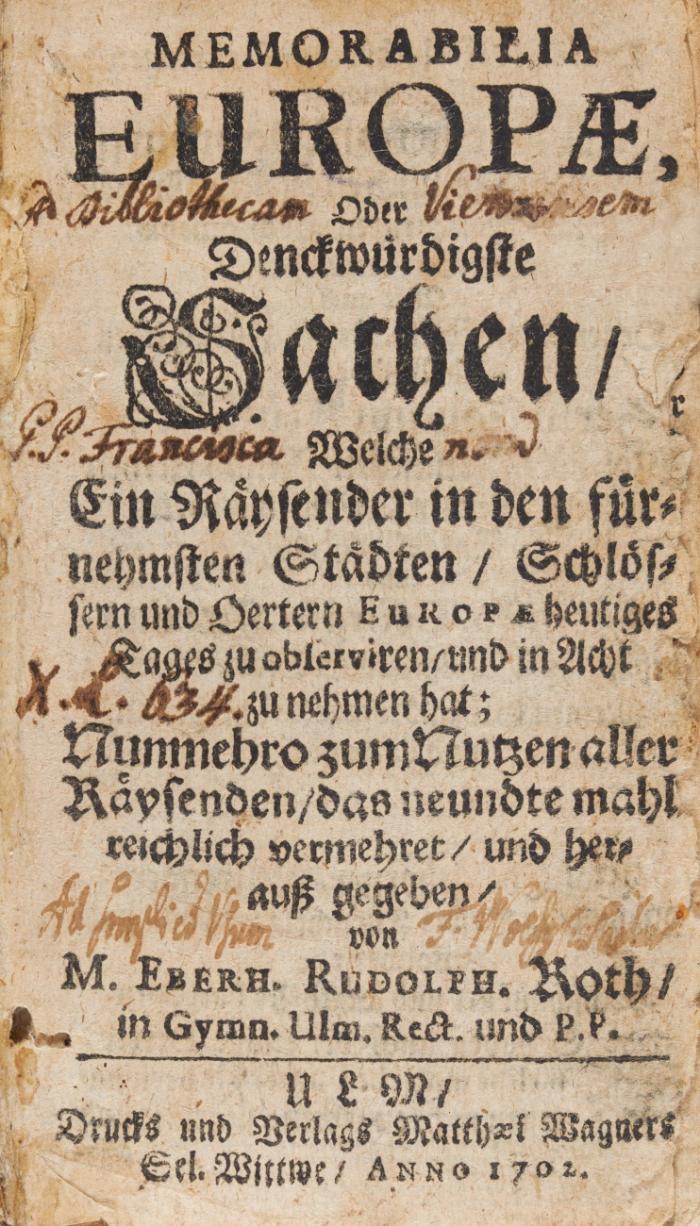 MEMORABILIA
EUROPÆ,
Ad Bibliothecam Oder Viennensem
Denckwürdigste
Sachen /
P.P. Francisca Welche
Ein Räysender in den für-
nehmsten Städten / Schlös-
sern und Oertern EUROPÆ heutiges
Tages zu observiren / und in Acht
X. L. 634. zu nehmen hat;
Nunmehro zum Nutzen aller
Räysenden / das neundte mahl
reichlich vermehret / und her-
auß gegeben /
Ad simplicē Usum von
M. EBERH. RUDOLPH. Roth /
in Gymn. Ulm. Rect. und P.P.
ULM /
Drucks und Verlags Matthæi Wagners
Sel. Wittwe / ANNO 1702.